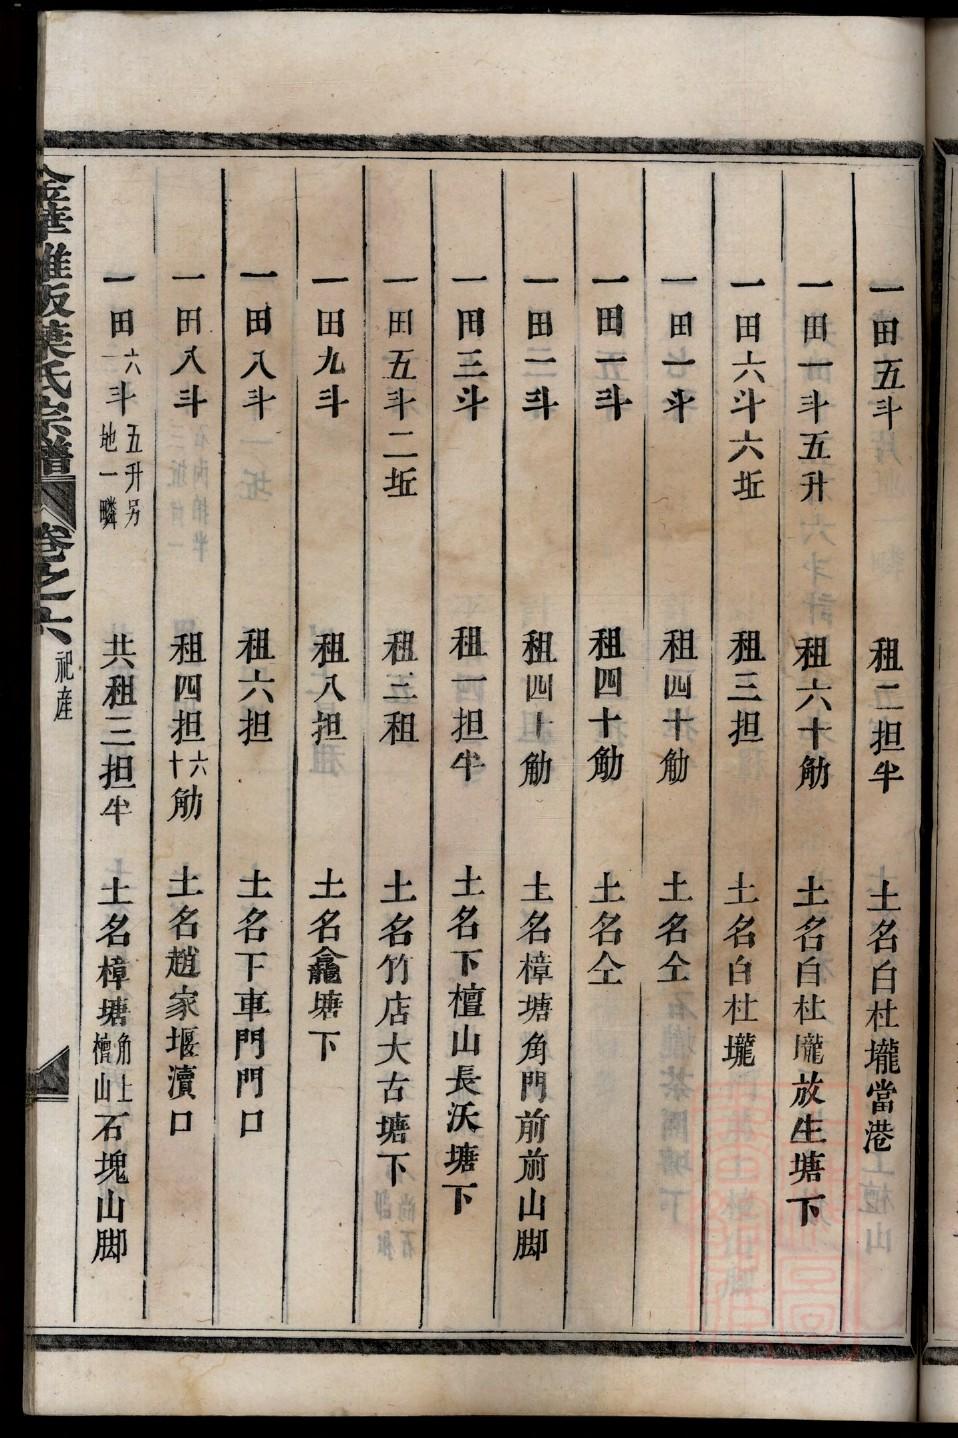 一田五斗 租二担半 土名白杜壠當港
一田一斗五升 租六十觔 土名白杜壠放生塘下
一田六斗六坵 租三担 土名白杜壠
一田一斗 租四十觔 土名仝
一田一斗 租四十觔 土名仝
一田二斗 租四十觔 土名樟塘角門前前山脚
一田三斗 租一担半 土名下檀山長沃塘下
一田五斗二坵 租三租 土名竹店大古塘下
一田九斗 租八担 土名龕塘下
一田八斗 租六担 土名下車門門口
一田八斗 租四担六十觔 土名趙家堰瀆口
一田六斗五升另地一疄 共租三担半 土名樟塘角上檀山石塊山脚
金華雅畈葉氏宗譜 卷之六 祀産